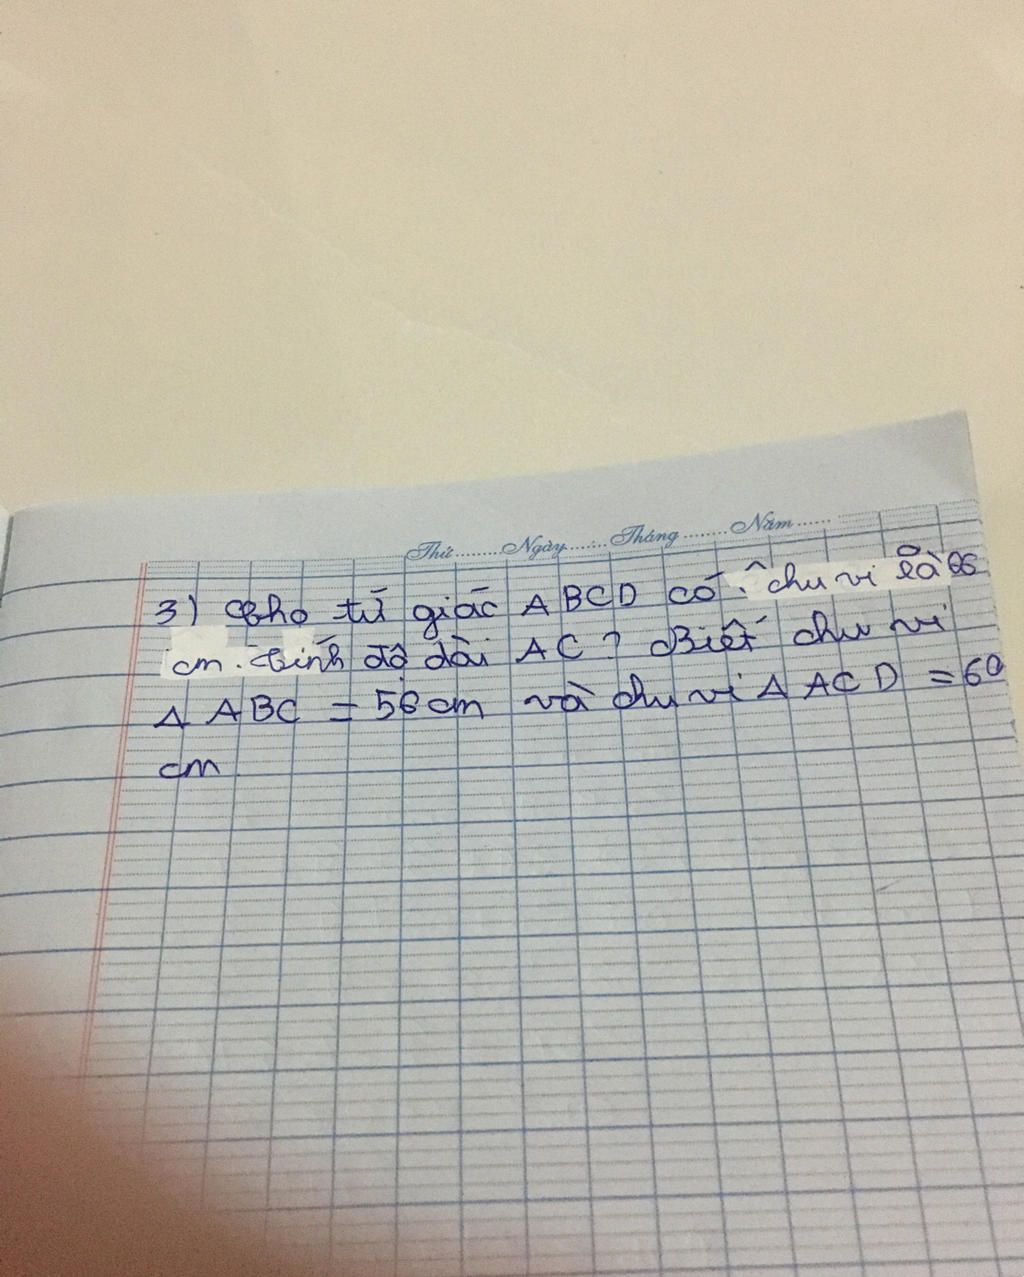 Thứ.........Ngày.........Tháng.........Năm.......
3) Cho tứ giác ABCD có : chu vi là 66
cm. Tính độ dài AC? Biết chu vi
Δ ABC = 56 cm và chu vi Δ ACD = 60
cm